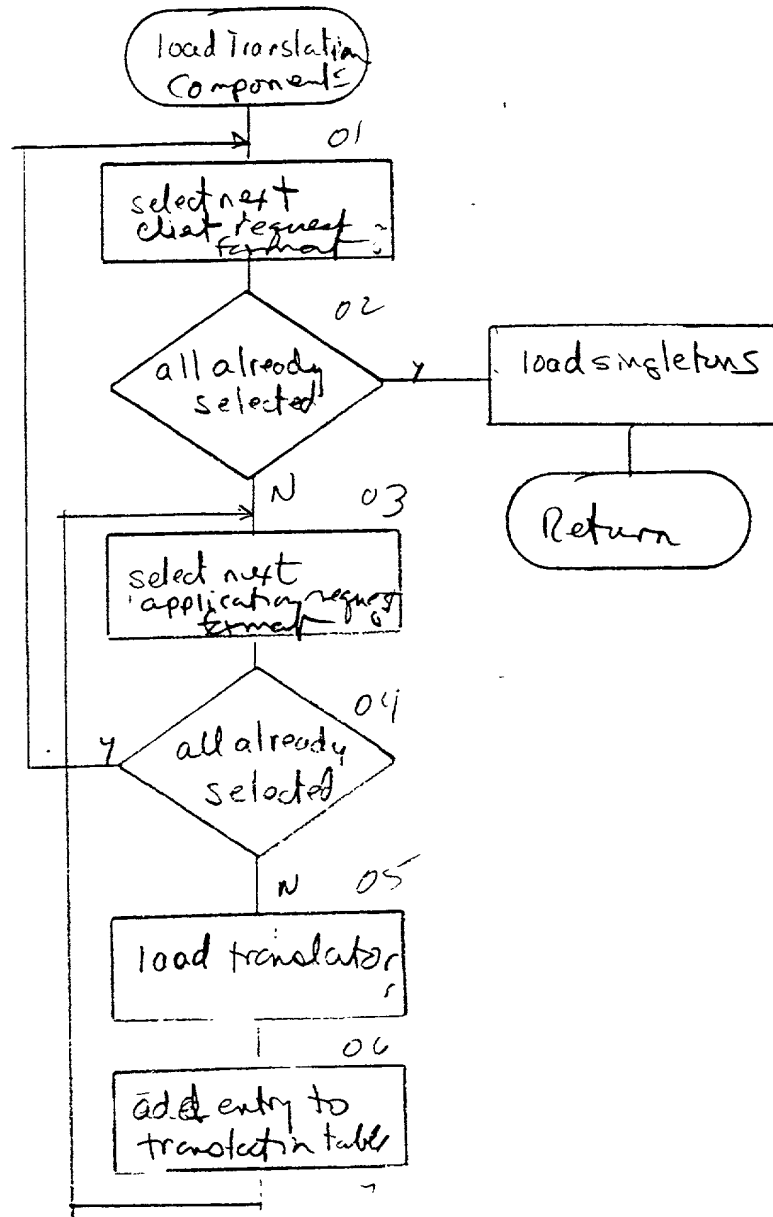 load Translation
Components
01
select next
client request
format
02
all already
selected
Y
load singletons
N
03
Return
select next
application request
format
04
Y
all already
selected
N
05
load translator
06
add entry to
translation table